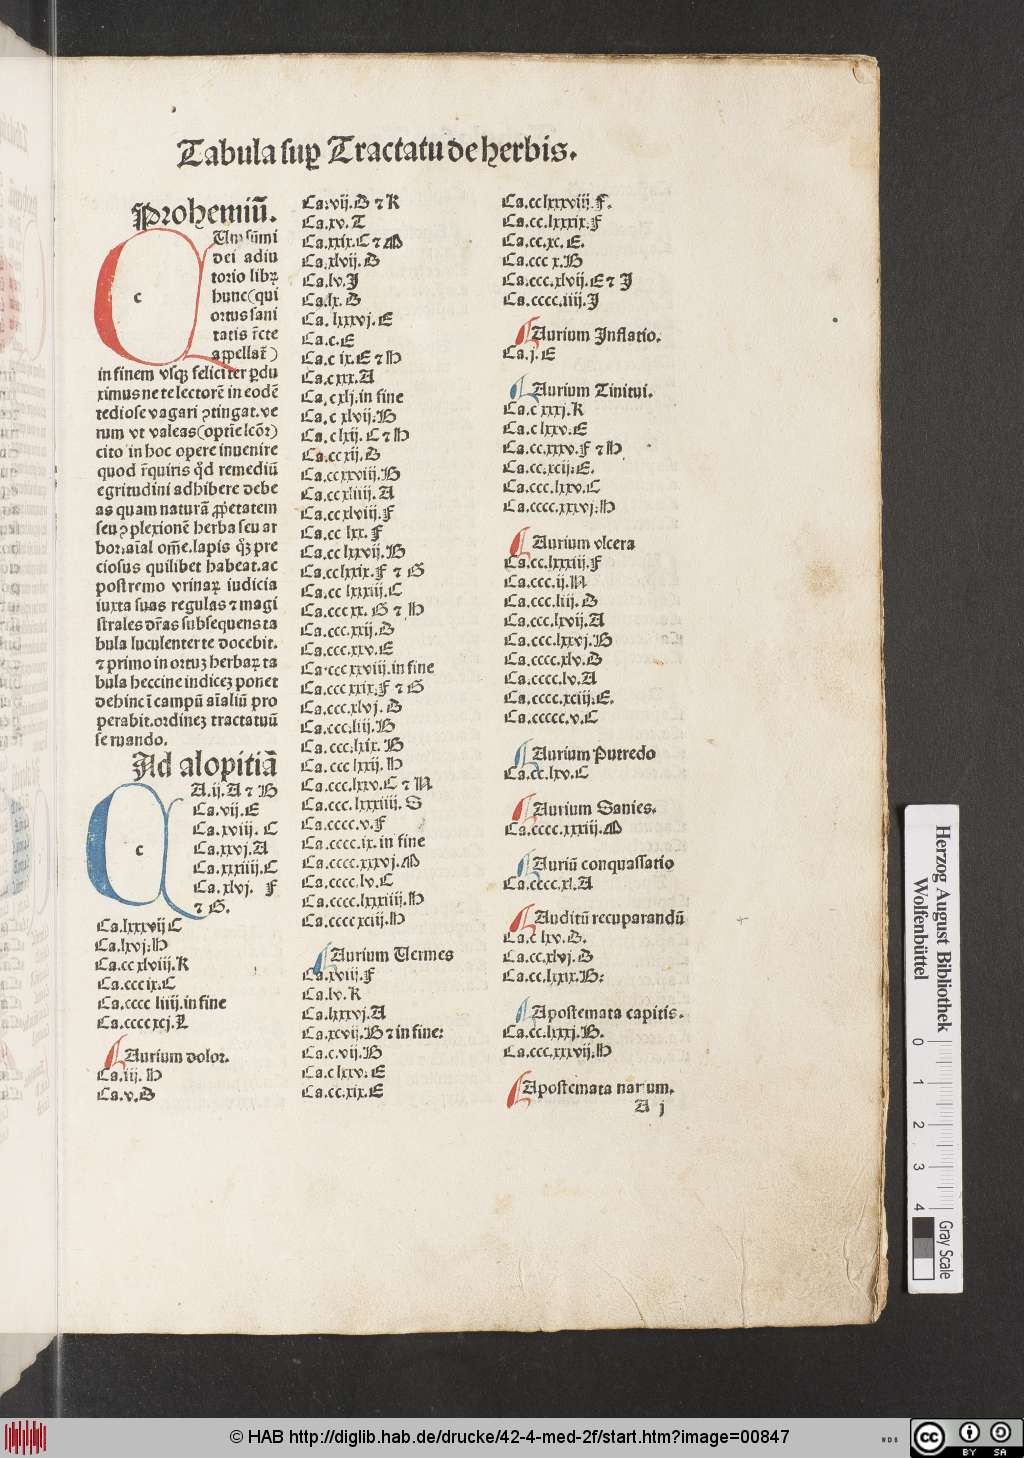 Tabula suꝑ Tractatu de herbis.
Prohemiū.
Um sūmi
dei adiu
torio libꝝ
hunc (qui
ortus sani
tatis r̄cte
appellat̄)
in finem vsqꝫ feliciter ꝑdu
ximus ne te lectorē in eodē
tediose vagari ꝯtingat. ve
rum vt valeas (optīe lcōr)
cito in hoc opere inuenire
quod r̄quiris qđ remediū
egritudini adhibere debe
as quam naturā ꝓp̄etatem
seu ꝯplexionē herba seu ar
bor. aīal om̄e. lapis qꝫ pre
ciosus quilibet habeat. ac
postremo vrinaꝝ iudicia
iuxta suas regulas ⁊ magi
strales dr̄as subsequens ta
bula luculenter te docebit.
⁊ primo in ortuꝫ herbaꝝ ta
bula heccine indiceꝫ ponet
dehinc ī campū aīaliū pro
perabit. ordineꝫ tractatuū
seruando.
Ad alopitiā
c
A.ij. A ⁊ B
Ca.vij. E
Ca.xviij. C
Ca.xxvj. A
Ca.xxxiiij. C
Ca.xlvj. F
⁊ G.
Ca.lxxxvij C
Ca.lxvj. H
Ca.cc xlviij. K
Ca.ccc ix. C
Ca.cccc liiij. in fine
Ca.cccc xcj. L
Aurium dolor.
Ca.iij. H
Ca.v. D
Ca.vij. D ⁊ K
Ca.xv. T
Ca.xxix. C ⁊ M
Ca.xlvij. D
Ca.lv. J
Ca.lx. D
Ca.lxxxvj. E
Ca.c. E
Ca.c ix. E ⁊ H
Ca.c xxx. A
Ca.c xlj. in fine
Ca.c xlvij. B
Ca.c lxij. C ⁊ H
Ca.cc xij. D
Ca.cc xxviij. B
Ca.cc xliiij. A
Ca.cc xlviij. F
Ca.cc lxx. F
Ca.cc lxxvij. B
Ca.cc lxxix. F ⁊ G
Ca.cc lxxxiij. C
Ca.ccc xx. G ⁊ H
Ca.ccc.xxij. D
Ca.ccc.xxv. E
Ca.ccc xxviij. in fine
Ca.ccc xxix. F ⁊ G
Ca.ccc.xlvj. D
Ca.ccc.liij. B
Ca.ccc.lxix. B
Ca.ccc lxxij. H
Ca.ccc.lxxv. C ⁊ N
Ca.ccc.lxxxiiij. S
Ca.cccc.v. F
Ca.cccc.ix. in fine
Ca.cccc.xxxvj. M
Ca.cccc.lv. C
Ca.cccc.lxxxiiij. H
Ca.cccc xciij. H
Aurium Uermes
Ca.xviij. F
Ca.lv. K
Ca.lxxxvj. A
Ca.xcvij. B ⁊ in fine:
Ca.c.vij. B
Ca.c lxxv. E
Ca.cc.xix. E
Ca.cc lxxxviij. F.
Ca.cc.lxxxix. F
Ca.cc.xc. E.
Ca.ccc x. B
Ca.ccc.xlvij. E ⁊ J
Ca.cccc.iiij. J
Aurium Inflatio.
Ca.j. E
Aurium Tinitui.
Ca.c xxxj. K
Ca.c lxxv. E
Ca.cc.xxxv. F ⁊ H
Ca.cc.xcij. E.
Ca.ccc.lxxv. C
Ca.cccc.xxxvj. H
Aurium vlcera
Ca.cc.lxxxiij. F
Ca.ccc.ij. N
Ca.ccc.liij. D
Ca.ccc.lvij. A
Ca.ccc.lxxvj. B
Ca.cccc.xlv. D
Ca.cccc.lv. A
Ca.cccc.xciij. E.
Ca.ccccc.v. C
Aurium Putredo
Ca.cc.lxv. C
Aurium Sanies.
Ca.cccc.xxxiij. M
Auriū conquassatio
Ca.cccc.xl. A
Auditū recuparandū
Ca.c lxv. D.
Ca.cc.xlvj. D
Ca.cc.lxxix. B:
Apostemata capitis.
Ca.cc.lxxxj. B.
Ca.ccc.xxxvij. H
Apostemata narium.
A j
Herzog August Bibliothek
Wolfenbüttel
0 1 2 3 4
Gray Scale
© HAB http://diglib.hab.de/drucke/42-4-med-2f/start.htm?image=00847
cc BY SA